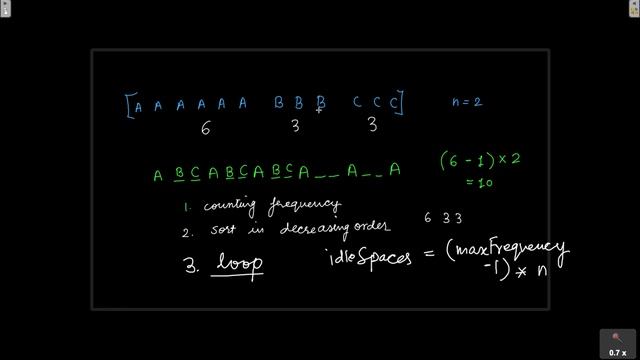 [A A A A A A B B B C C C] n=2
6 3 3
A B C A B C A B C A _ _ A _ _ A (6-1)×2
=10
1. counting frequency
2. sort in decreasing order 6 3 3
3. loop idleSpaces = (maxFrequency
-1) * n
0.7 x